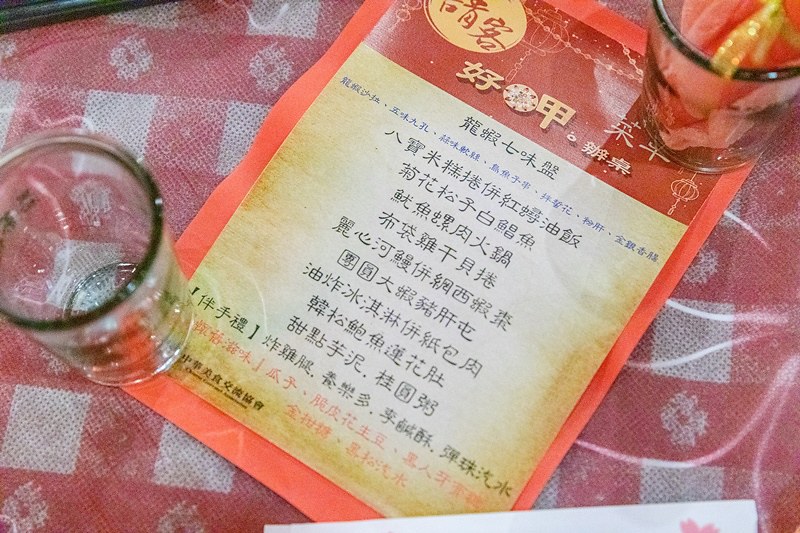 請客
好 甲
菜單
。辦桌
龍蝦七味盤
龍蝦沙拉、五味九孔、蒜味軟絲、烏魚子串、拌蜇花、粉肝、金銀香腸
八寶米糕捲併紅蟳油飯
菊花松子白鯧魚
魷魚螺肉火鍋
布袋雞干貝捲
麗心河鰻併網西蝦棗
團圓大蝦豬肝屯
油炸冰淇淋併紙包肉
韓松鮑魚蓮花肚
甜點芋泥．桂圓粥
【伴手禮】炸雞腿．養樂多．李鹹酥．彈珠汽水
滋味」瓜子、脆虎花生豆、黑人牙膏
金柑糖、黑松汽水
中華美食交流協會